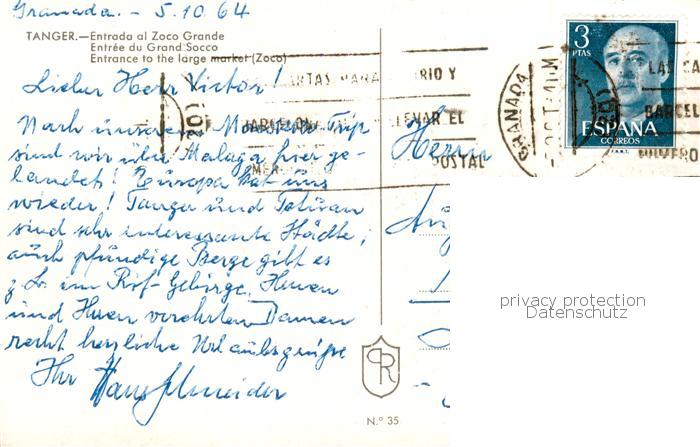 Granada. - 5.10.64
TANGER.—Entrada al Zoco Grande
Entrée du Grand Socco
Entrance to the large market (Zoco)
Lieber Herr Victor!
Nach unserem Marokko-Trip
sind wir über Malaga hier ge-
landet! Europa hat uns
wieder! Tanger und Tetuan
sind sehr interessante Städte;
auch pfundige Berge gibt es
z.B. im Rif-Gebirge. Ihnen
und Ihren verehrten Damen
recht herzliche Urlaubsgrüße
Ihr Hans Schneider
Herrn
CARTAS PARA
RIO Y
BARCELONA
LLEVAR EL
POSTAL
GRANADA
3
PTAS
ESPAÑA
CORREOS
F.N.M.T.
LAS CA
BARCEL
privacy protection
Datenschutz
N.º 35